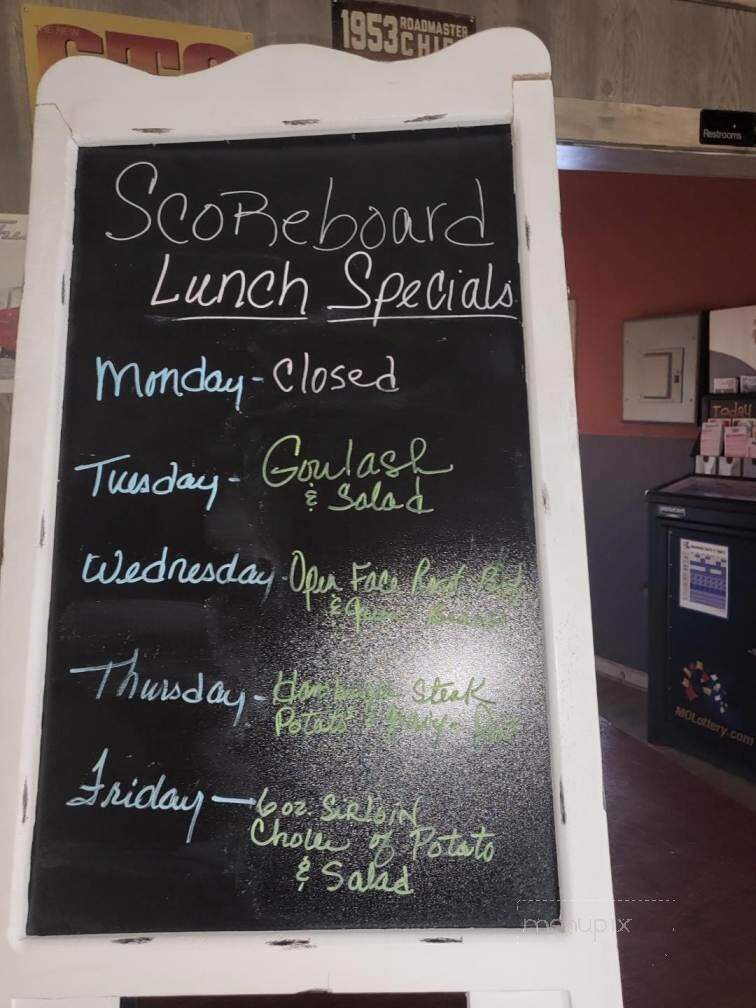 THE NEW
GTO
1953 ROADMASTER
Restrooms
Scoreboard
Lunch Specials
Monday - Closed
Tuesday - Goulash
& Salad
Wednesday - Open Face Roast Beef
& Green Beans
Thursday - Hamburger Steak
Potato & Gravy -
Friday - 6 oz. Sirloin
Choice of Potato
& Salad
Today
MOLottery.com
menupix